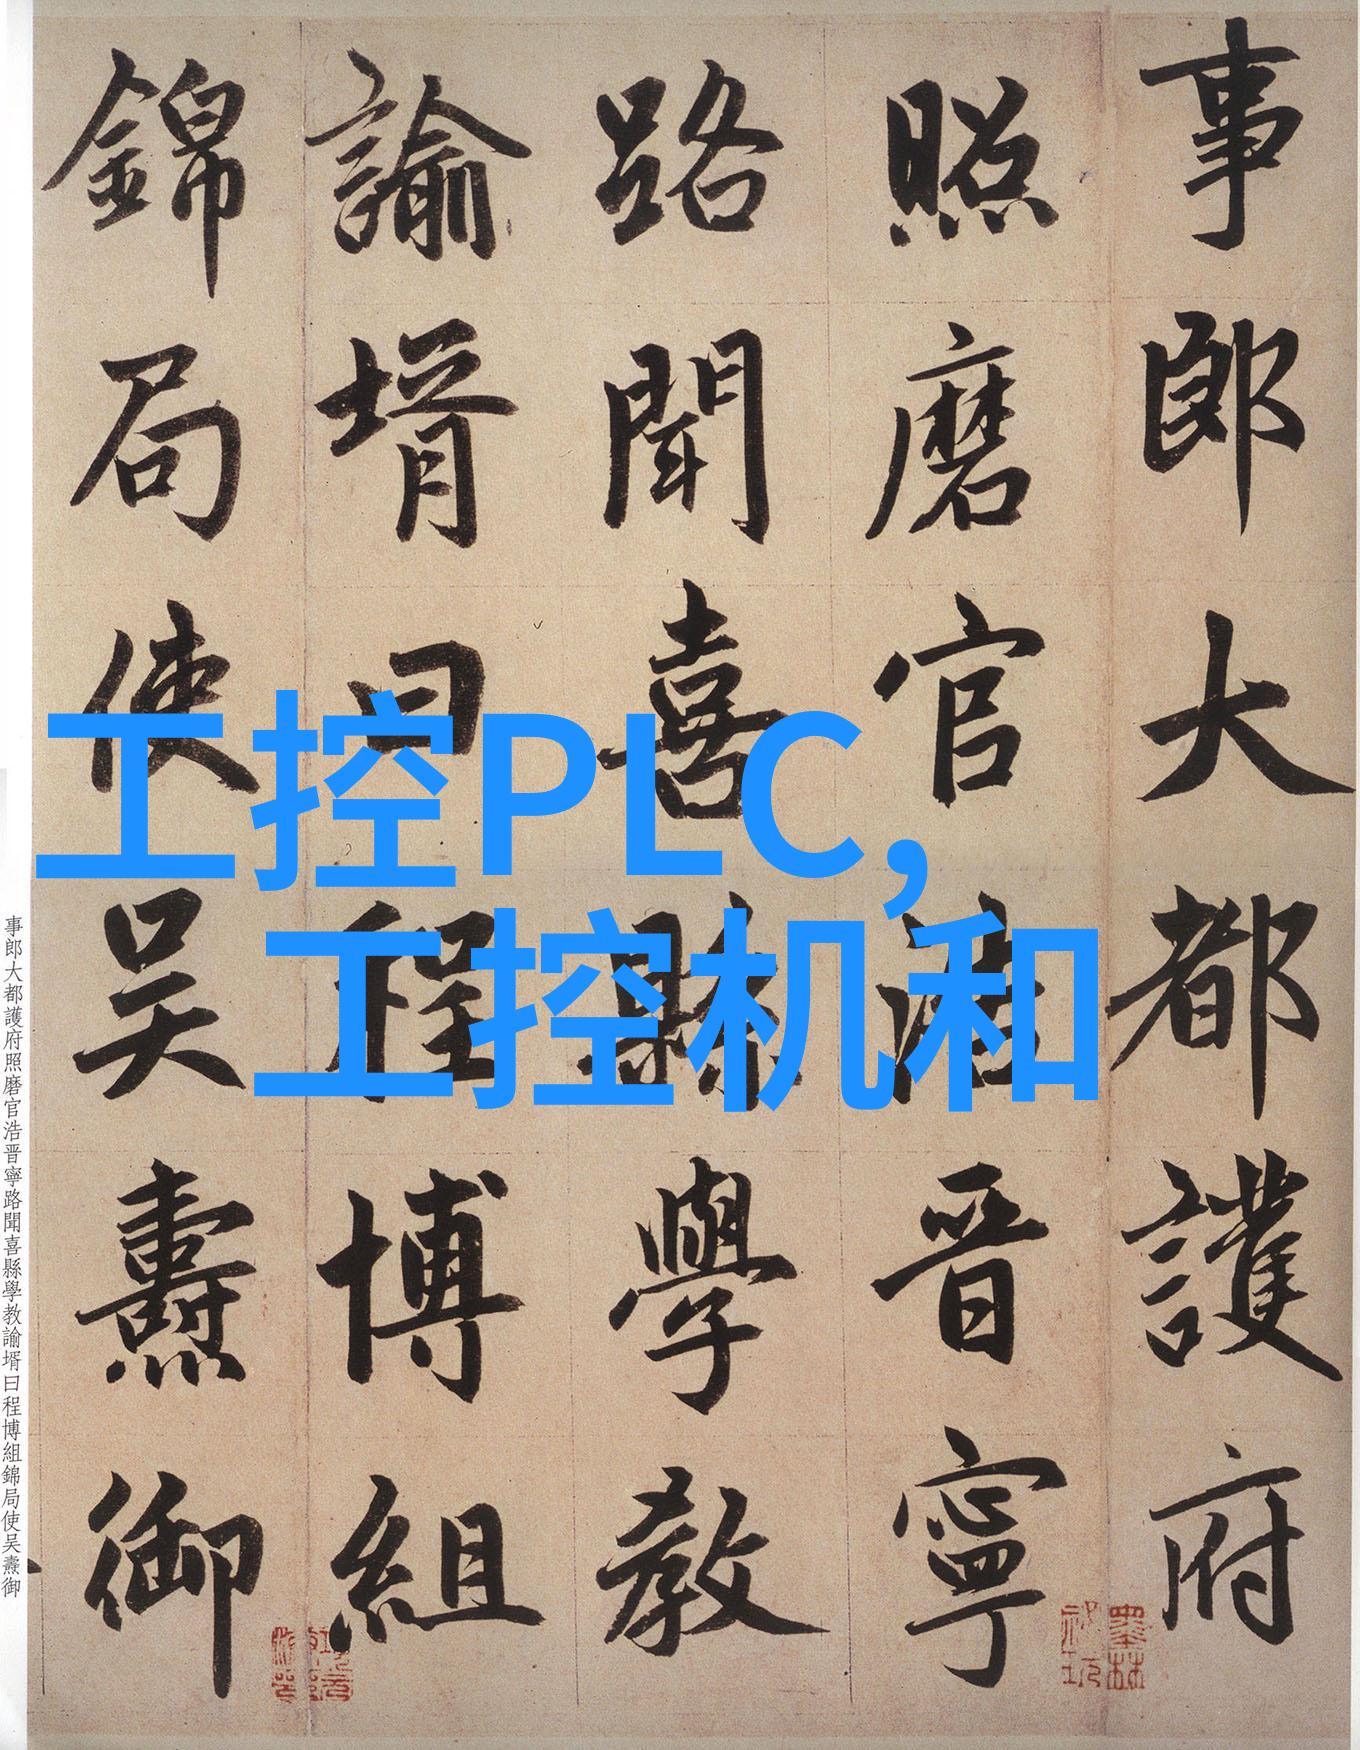 事郎大都護府
照磨官浩晋寧
路聞喜縣學教
諭壻曰程博組
錦局使吴燾御
工控PLC,
工控机和
事郎大都護府照磨官浩晋寧路聞喜縣學教諭壻曰程博組錦局使吴燾御